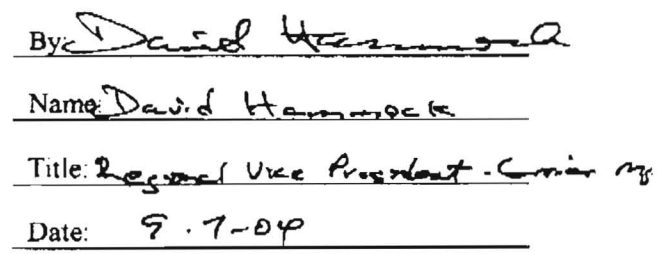 By: David Hammock
Name: David Hammock
Title: Regional Vice President - Carrier
Date: 9-7-04